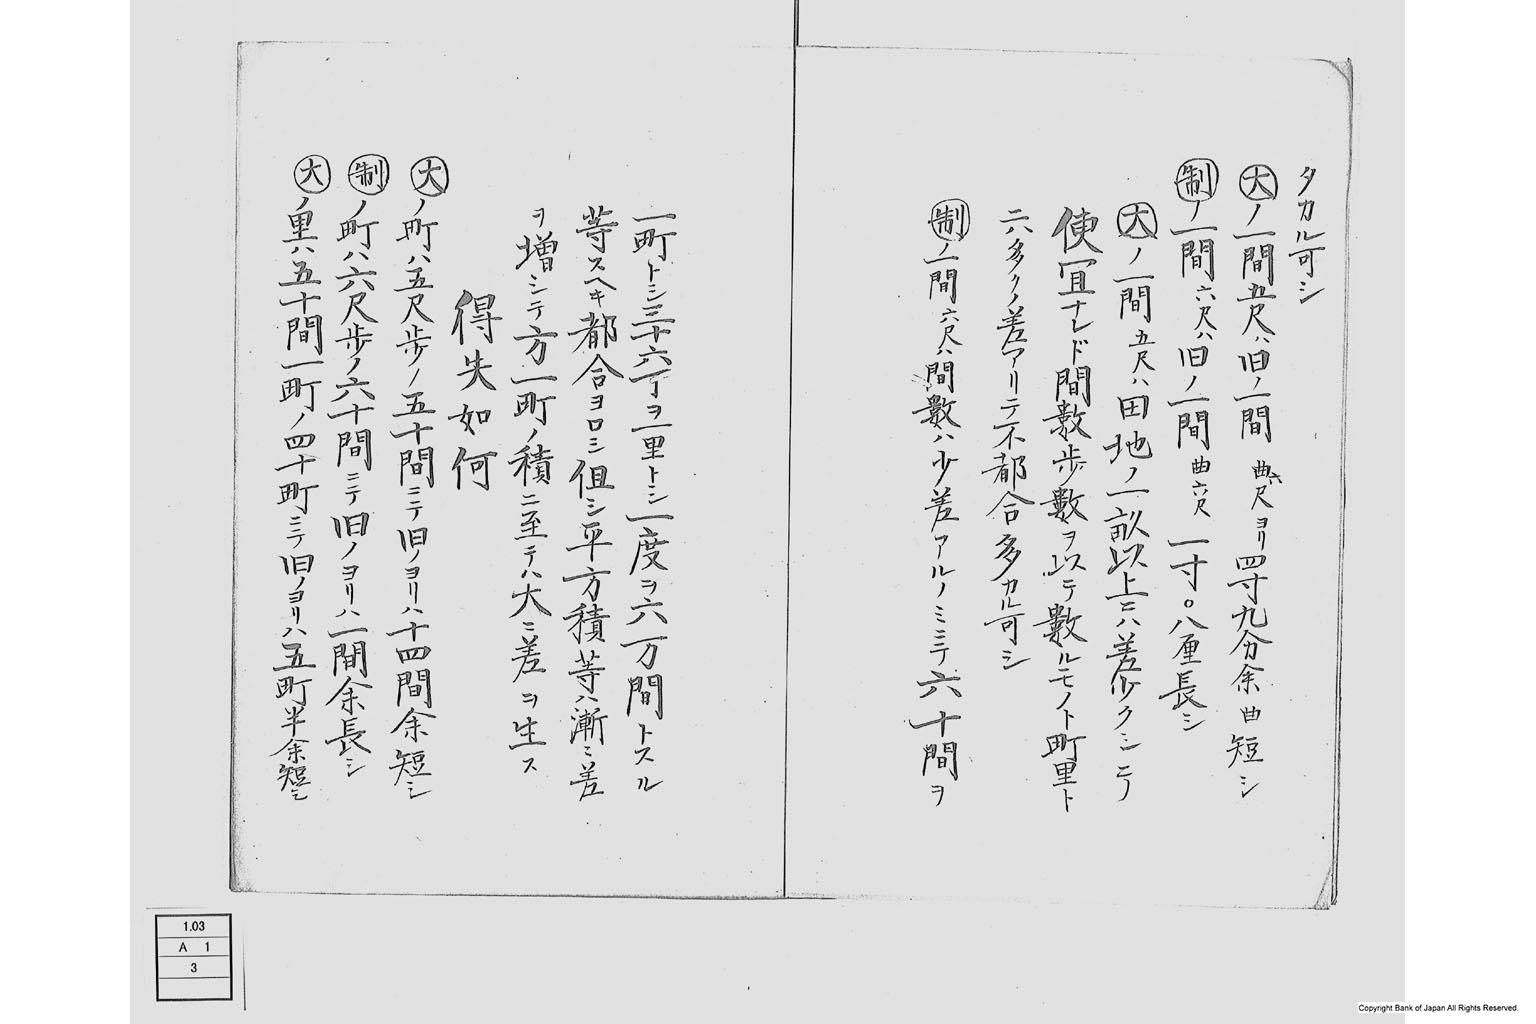 タカル可シ
㊅大ノ一間五尺ハ旧ノ一間曲尺ヨリ四寸九分余曲短シ
制ノ一間六尺ハ旧ノ一間曲六尺一寸○八厘長シ
大ノ一間五尺ハ田地ノ一畝以上ニハ差少クシニテ
使宜ナレド間数歩數ヲ以テ數ルモノト町里ト
ニ六多クノ差アリテ不都合多カル可シ
制ノ一間六尺ハ間數ハ少差アルノミニテ六十間ヲ
一町トシ三十六丁ヲ一里トシ一度ヲ六万間トスル
等スヘキ都合ヨロシ但シ平方積等ハ漸ニ差
ヲ増シテ方一町ノ積ニ至テハ大ニ差ヲ生ス
得失如何
大ノ町ハ五尺歩ノ五十間ニテ旧ノヨリハ十四間余短シ
制ノ町ハ六尺歩ノ六十間ニテ旧ノヨリハ一間余長シ
大ノ里ハ五十間一町ノ四十町ニテ旧ノヨリハ五町半余短シ
1.03
A 1
3
Copyright Bank of Japan All Rights Reserved.